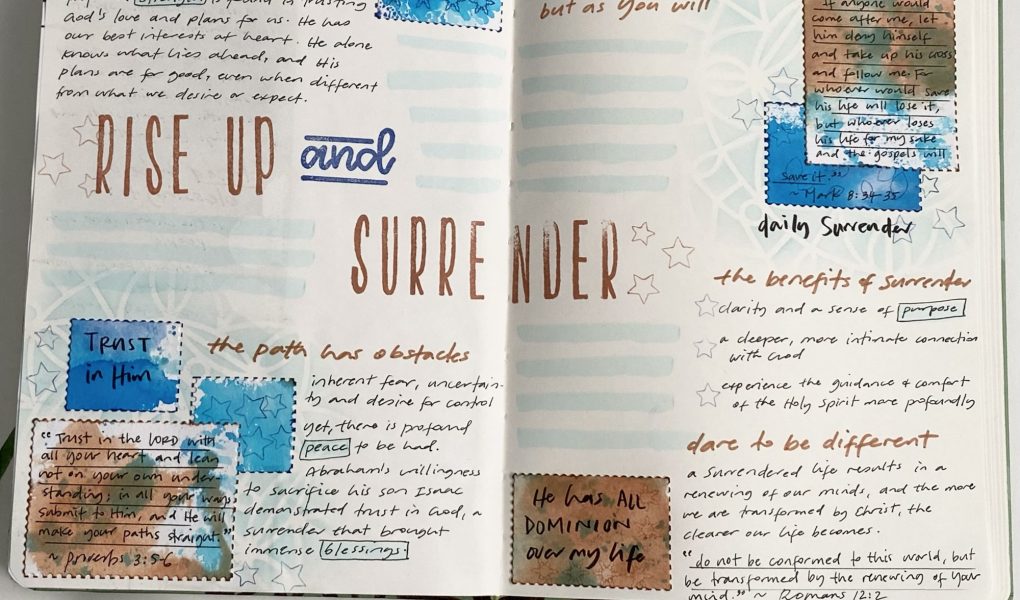 God's love and plans for us. He has
our best interests at heart. He alone
knows what lies ahead, and His
plans are for good, even when different
from what we desire or expect.
RISE UP and
SURRENDER
TRUST
in Him
the path has obstacles
inherent fear, uncertain-
ty and desire for control
yet, there is profound
peace to be had.
Abraham's willingness
to sacrifice his son Isaac
demonstrated trust in God, a
surrender that brought
immense blessings.
"Trust in the LORD with
all your heart and lean
not on your own under
standing; in all your ways
submit to Him, and He will
make your paths straight."
~ Proverbs 3:5-6
but as you will
If anyone would
come after me, let
him deny himself
and take up his cross
and follow me. For
whoever would save
his life will lose it,
but whoever loses
his life for my sake
and the gospels will
save it."
~ Mark 8:34-35
daily Surrender
the benefits of surrender
clarity and a sense of purpose
a deeper, more intimate connection
with God
experience the guidance & comfort
of the Holy Spirit more profoundly
dare to be different
a surrendered life results in a
renewing of our minds, and the more
we are transformed by Christ, the
clearer our life becomes.
"do not be conformed to this world, but
be transformed by the renewing of your
mind." ~ Romans 12:2
He has ALL
DOMINION
over my life